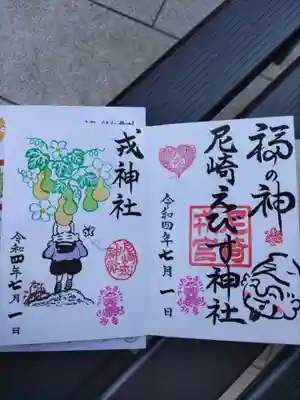 福の神
尼崎えびす神社
令和四年七月一日
戎神社
令和四年七月一日